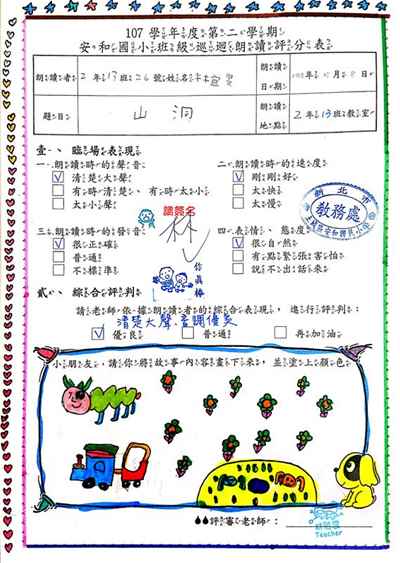 107 學年度第二學期
安和國小班級巡迴朗讀評分表
朗讀者 2年13班26號姓名林
朗讀日期
題目 山洞
朗讀地點 2年13班教室
壹、臨場表現
一、朗讀時的聲音
✓ 清楚大聲
有時清楚、有時太小
太小聲
二、朗讀時的速度
✓ 剛剛好
太快
太慢
請簽名
林
新北市
教務處
三、朗讀時的發音
✓ 很正確
普通
不標準
四、表情、態度
✓ 很自然
有點緊張害怕
說不出話來
你真棒
貳、綜合評判
請老師依據朗讀者的綜合表現，進行評判：
清楚大聲、音調優美
✓ 優良 普通 再加油
小朋友，請你將故事內容畫下來，並塗上顏色
評審老師：
Teacher